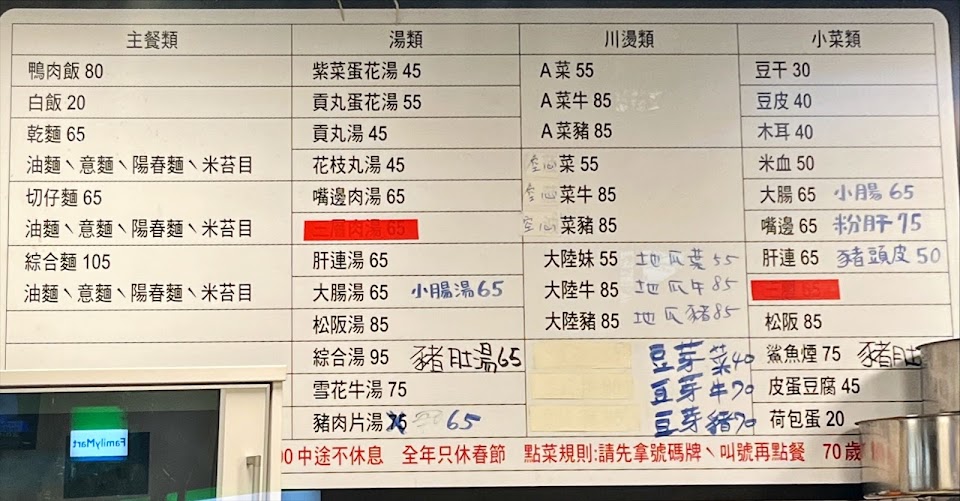 主餐類 湯類 川燙類 小菜類
鴨肉飯 80 紫菜蛋花湯 45 A菜 55 豆干 30
白飯 20 貢丸蛋花湯 55 A菜牛 85 豆皮 40
乾麵 65 貢丸湯 45 A菜豬 85 木耳 40
油麵、意麵、陽春麵、米苔目 花枝丸湯 45 空心菜 55 米血 50
切仔麵 65 嘴邊肉湯 65 空心菜牛 85 大腸 65 小腸 65
油麵、意麵、陽春麵、米苔目 三層肉湯 65 空心菜豬 85 嘴邊 65 粉肝 75
綜合麵 105 肝連湯 65 大陸妹 55 地瓜葉 55 肝連 65 豬頭皮 50
油麵、意麵、陽春麵、米苔目 大腸湯 65 小腸湯 65 大陸牛 85 地瓜牛 85 三層 65
松阪湯 85 大陸豬 85 地瓜豬 85 松阪 85
綜合湯 95 豬肚湯 65 豆芽菜 40 鯊魚煙 75 豬肚
雪花牛湯 75 豆芽牛 70 皮蛋豆腐 45
豬肉片湯 65 豆芽豬 70 荷包蛋 20
00 中途不休息 全年只休春節 點菜規則:請先拿號碼牌、叫號再點餐 70 歲
FamilyMart